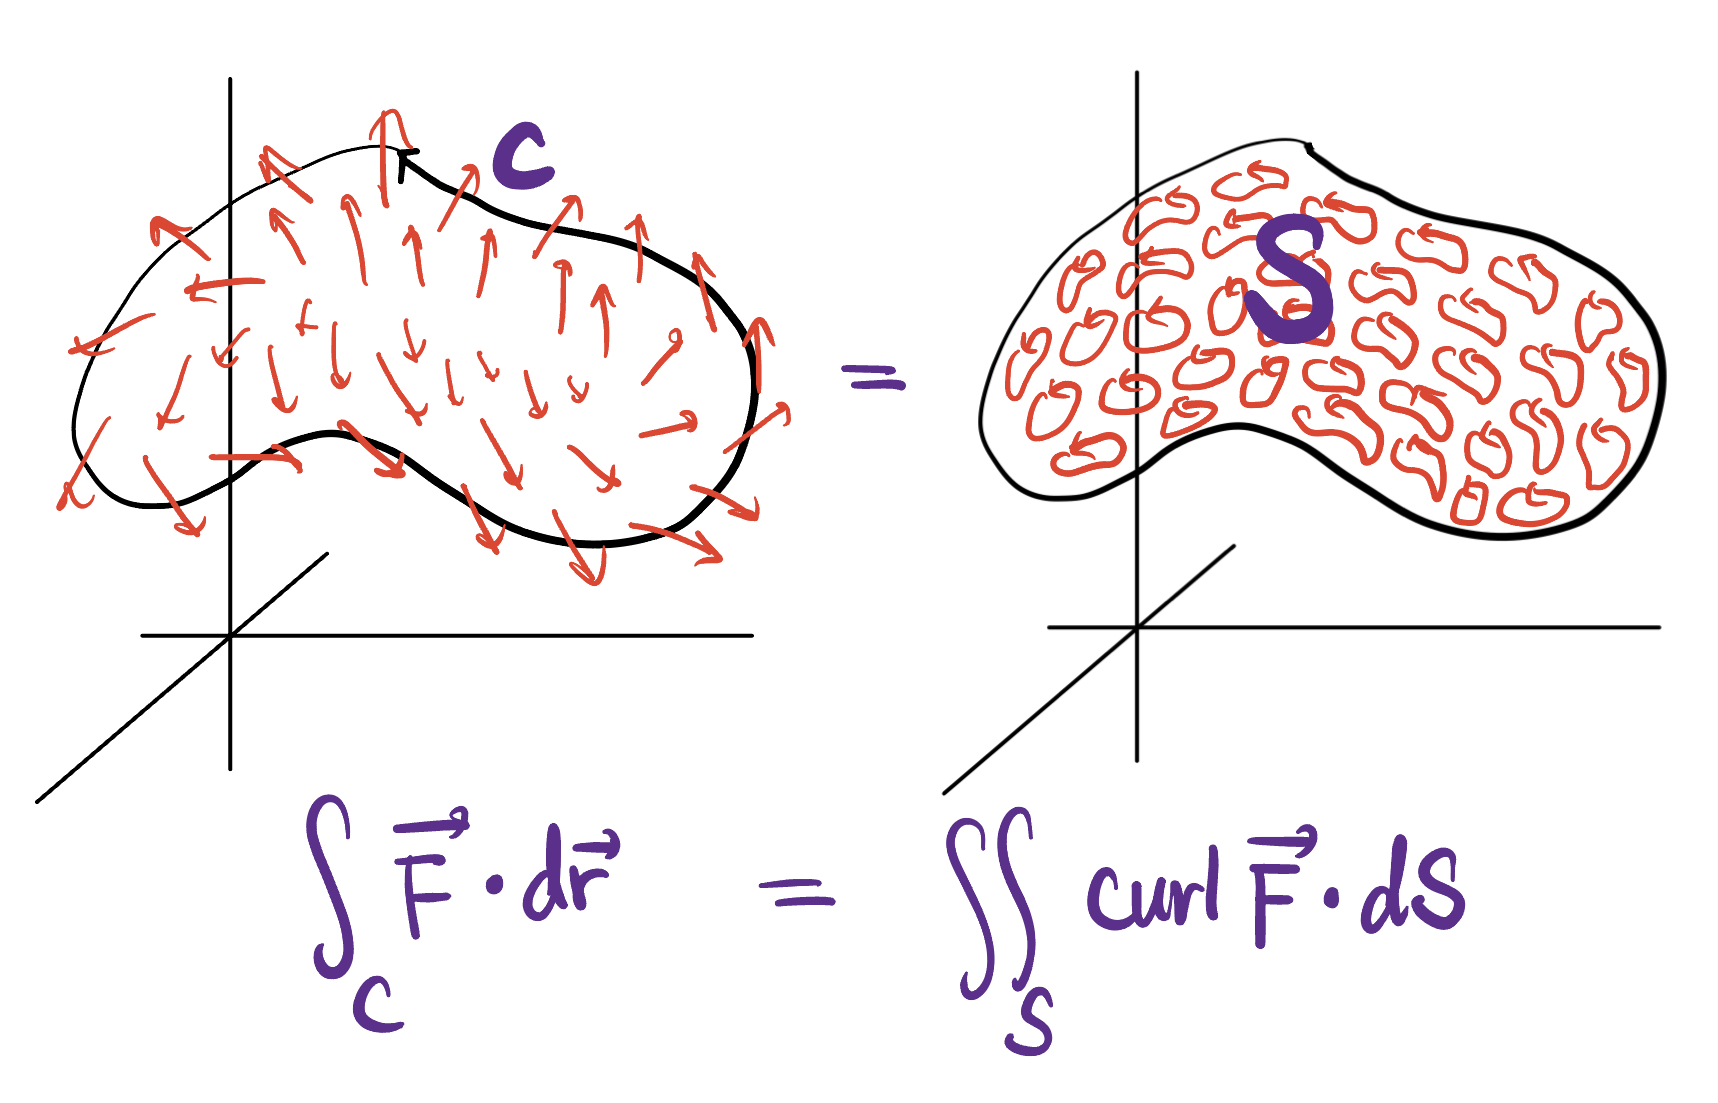 C
=
S
∫_C F⃗ · dr⃗ = ∬_S curl F⃗ · dS